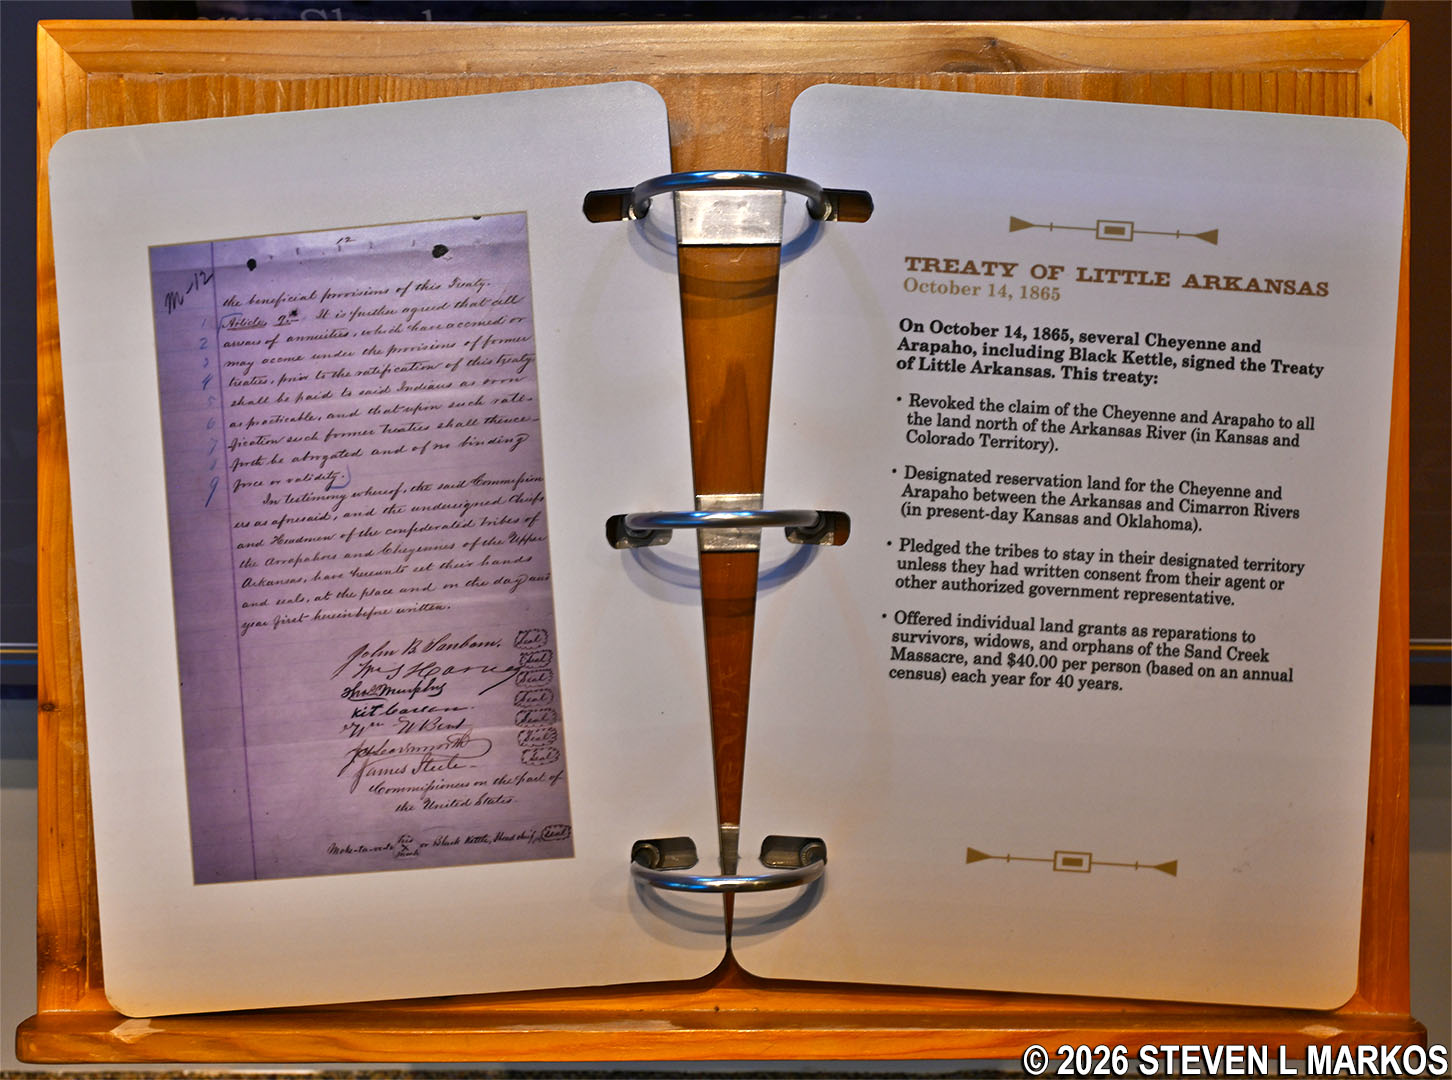 12
M-12
the beneficial provisions of this Treaty.
Article 9th. It is further agreed that all
arrears of annuities, which have accrued or
may accrue under the provisions of former
treaties, prior to the ratification of this treaty
shall be paid to said Indians as soon
as practicable, and that upon such rati-
fication such former treaties shall thence-
forth be abrogated and of no binding
force or validity.
In testimony whereof, the said Commission
ers as aforesaid, and the undersigned Chiefs
and Headmen of the confederated tribes of
the Arrapahoes and Cheyennes of the Upper
Arkansas, have hereunto set their hands
and seals, at the place and on the day and
year first hereinbefore written.
John B Sanborn. Seal
Wm S Harney Seal
Thos Murphy Seal
Kit Carson. Seal
Wm W Bent Seal
J H Leavenworth Seal
James Steele Seal
Commissioners on the part of
the United States.
Moke-ta-ve-to his x mark or Black Kettle, Head chief, Seal
TREATY OF LITTLE ARKANSAS
October 14, 1865
On October 14, 1865, several Cheyenne and
Arapaho, including Black Kettle, signed the Treaty
of Little Arkansas. This treaty:
• Revoked the claim of the Cheyenne and Arapaho to all
the land north of the Arkansas River (in Kansas and
Colorado Territory).
• Designated reservation land for the Cheyenne and
Arapaho between the Arkansas and Cimarron Rivers
(in present-day Kansas and Oklahoma).
• Pledged the tribes to stay in their designated territory
unless they had written consent from their agent or
other authorized government representative.
• Offered individual land grants as reparations to
survivors, widows, and orphans of the Sand Creek
Massacre, and $40.00 per person (based on an annual
census) each year for 40 years.
© 2026 STEVEN L MARKOS